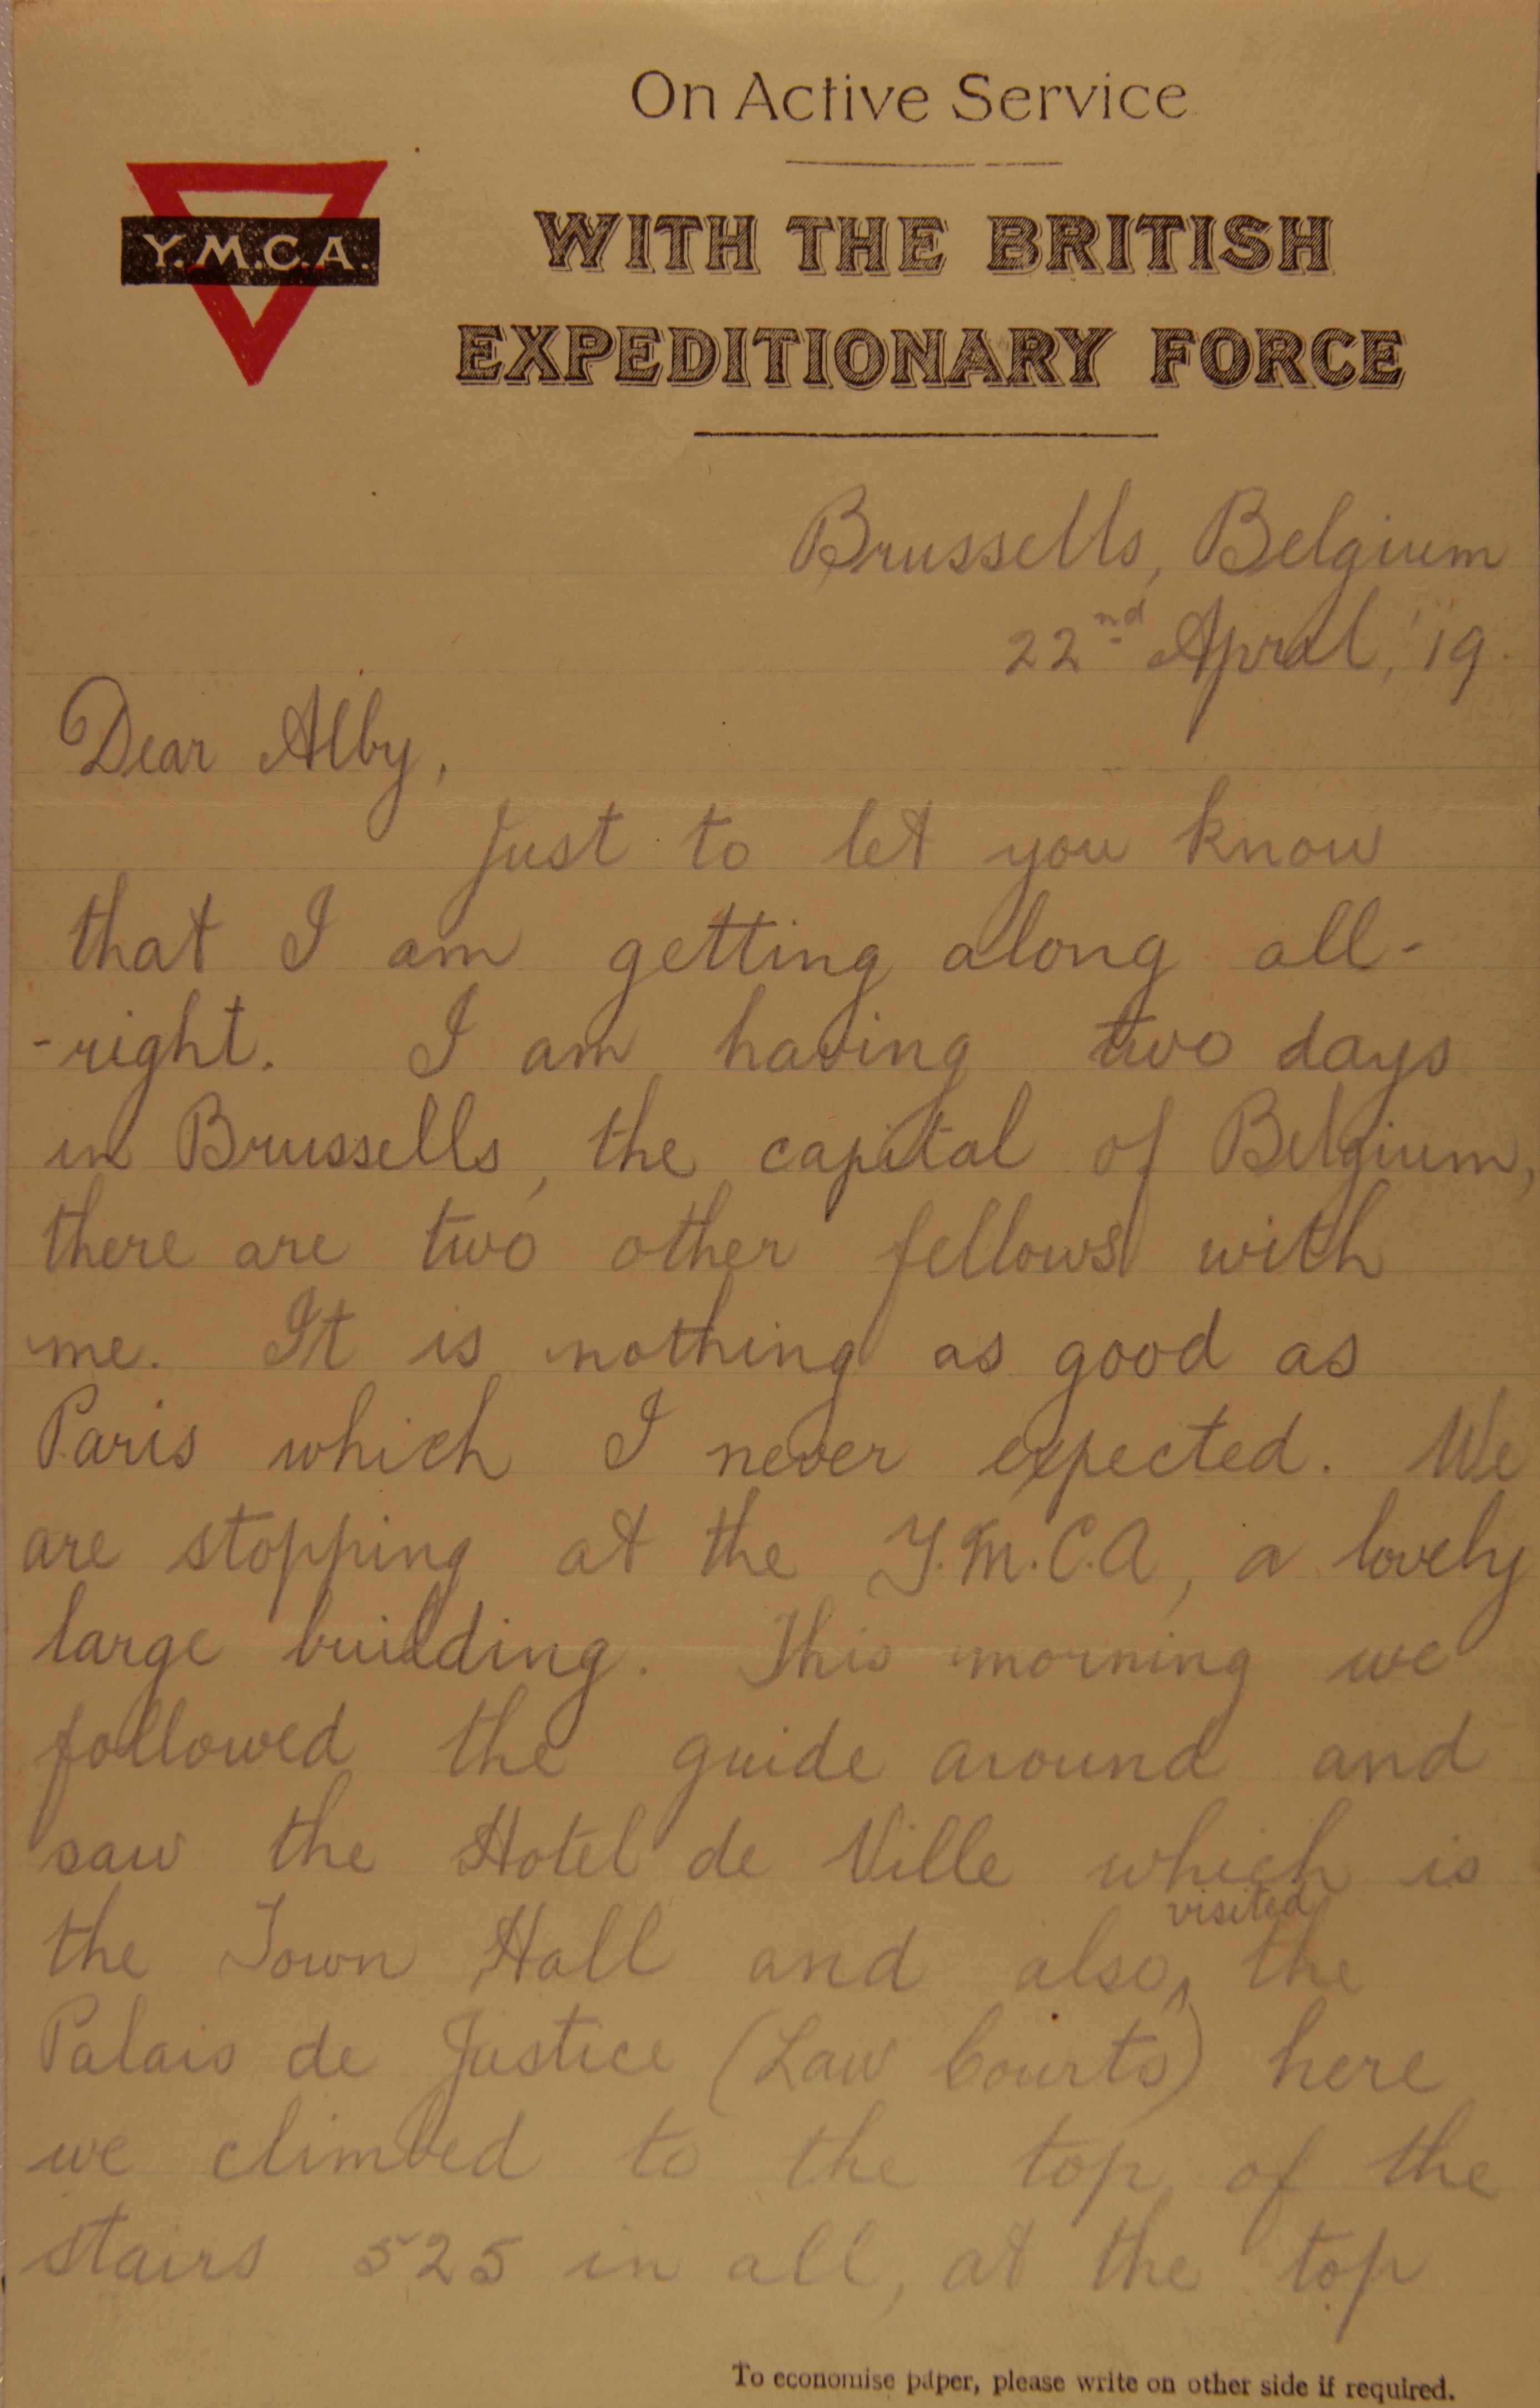 On Active Service
Y.M.C.A.
WITH THE BRITISH
EXPEDITIONARY FORCE
Brussells, Belgium
22nd April, '19.
Dear Alby,
Just to let you know
that I am getting along all-
-right. I am having two days
in Brussells, the capital of Belgium,
there are two other fellows with
me. It is nothing as good as
Paris which I never expected. We
are stopping at the Y.M.C.A, a lovely
large building. This morning we
followed the guide around and
saw the Hotel de Ville which is
the Town Hall and also visited the
Palais de Justice (Law Courts) here
we climbed to the top of the
stairs 525 in all, at the top
To economise paper, please write on other side if required.